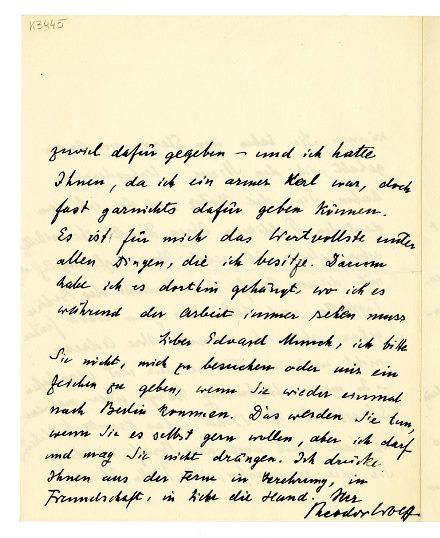 K3445
zuviel dafür gegeben – und ich hatte
Ihnen, da ich ein armer Kerl war, doch
fast garnichts dafür geben können.
Es ist für mich das Wertvollste unter
allen Dingen, die ich besitze. Darum
habe ich es dorthin gehängt, wo ich es
während der Arbeit immer sehen muss
Lieber Edvard Munch, ich bitte
Sie nicht, mich zu besuchen oder mir ein
Zeichen zu geben, wenn Sie wieder einmal
nach Berlin kommen. Das werden Sie tun,
wenn Sie es selbst gern wollen, aber ich darf
und mag Sie nicht drängen. Ich drücke
Ihnen aus der Ferne in Verehrung, in
Freundschaft, in Liebe die Hand. Ihr
Theodor Wolff